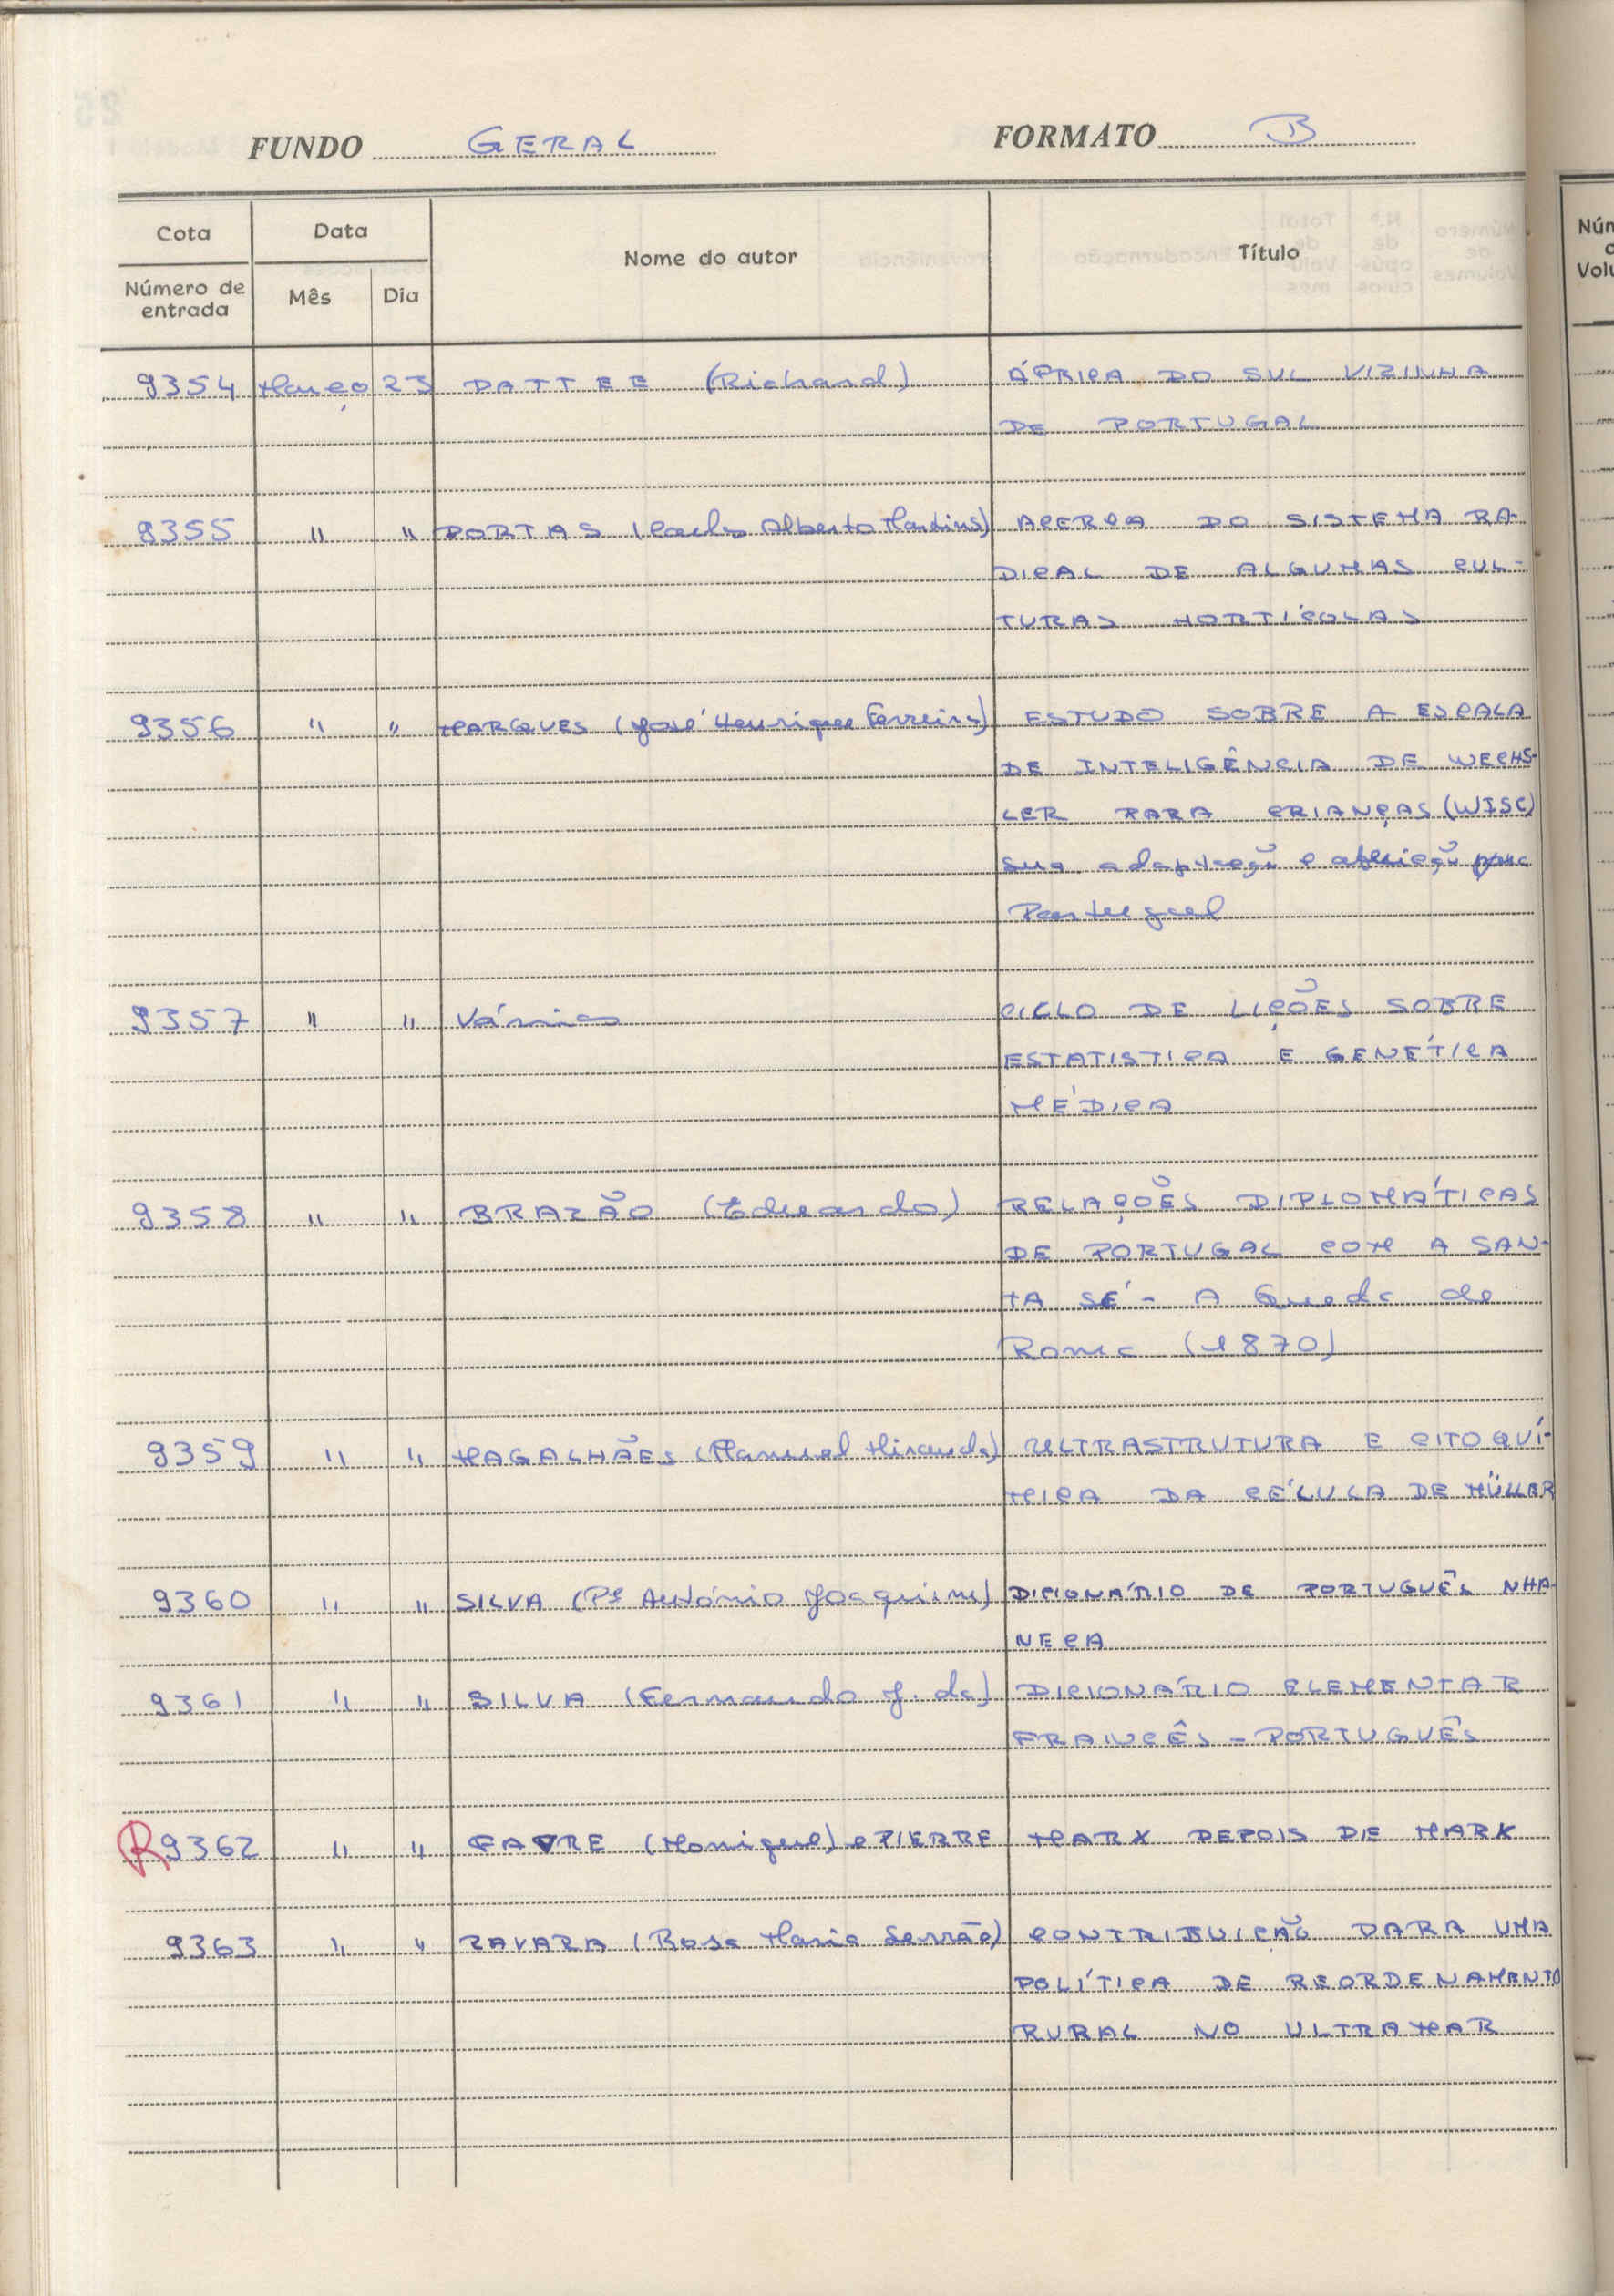 FUNDO GERAL FORMATO B
Cota Data Nome do autor Título
Número de entrada Mês Dia
Núm
Volu
9354 Março 23 DATTEE (Richard) ÁFRICA DO SUL VIZINHA
DE PORTUGAL
9355 " " PORTAS (Carlos Alberto Martins) ACERCA DO SISTEMA RA-
DICAL DE ALGUMAS CUL-
TURAS HORTÍCOLAS
9356 " " MARQUES (José Henrique Ferreira) ESTUDO SOBRE A ESCALA
DE INTELIGÊNCIA DE WECHS-
LER PARA CRIANÇAS (WISC)
sua adaptação e aferição para
Portugal
9357 " " Vários CICLO DE LIÇÕES SOBRE
ESTATISTICA E GENÉTICA
MÉDICA
9358 " " BRAZÃO (Eduardo) RELAÇÕES DIPLOMÁTICAS
DE PORTUGAL COM A SAN-
TA SÉ - A Queda de
Roma (1870)
9359 " " MAGALHÃES (Manuel Miranda) ULTRASTRUTURA E CITOQUÍ-
MICA DA CÉLULA DE MÜLLER
9360 " " SILVA (Pe António Joaquim) DICIONÁRIO DE PORTUGUÊS NHA-
NECA
9361 " " SILVA (Fernando J. da) DICIONÁRIO ELEMENTAR
FRANCÊS - PORTUGUÊS
R 9362 " " FAVRE (Monique) e PIERRE MARX DEPOIS DE MARX
9363 " " RAVARA (Rosa Maria Serrão) CONTRIBUIÇÃO PARA UMA
POLÍTICA DE REORDENAMENTO
RURAL NO ULTRAMAR